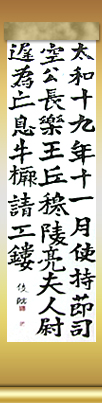 太和十九年十一月使持節司
空公長樂王丘穆陵亮夫人尉
遲為亡息牛橛請工鏤